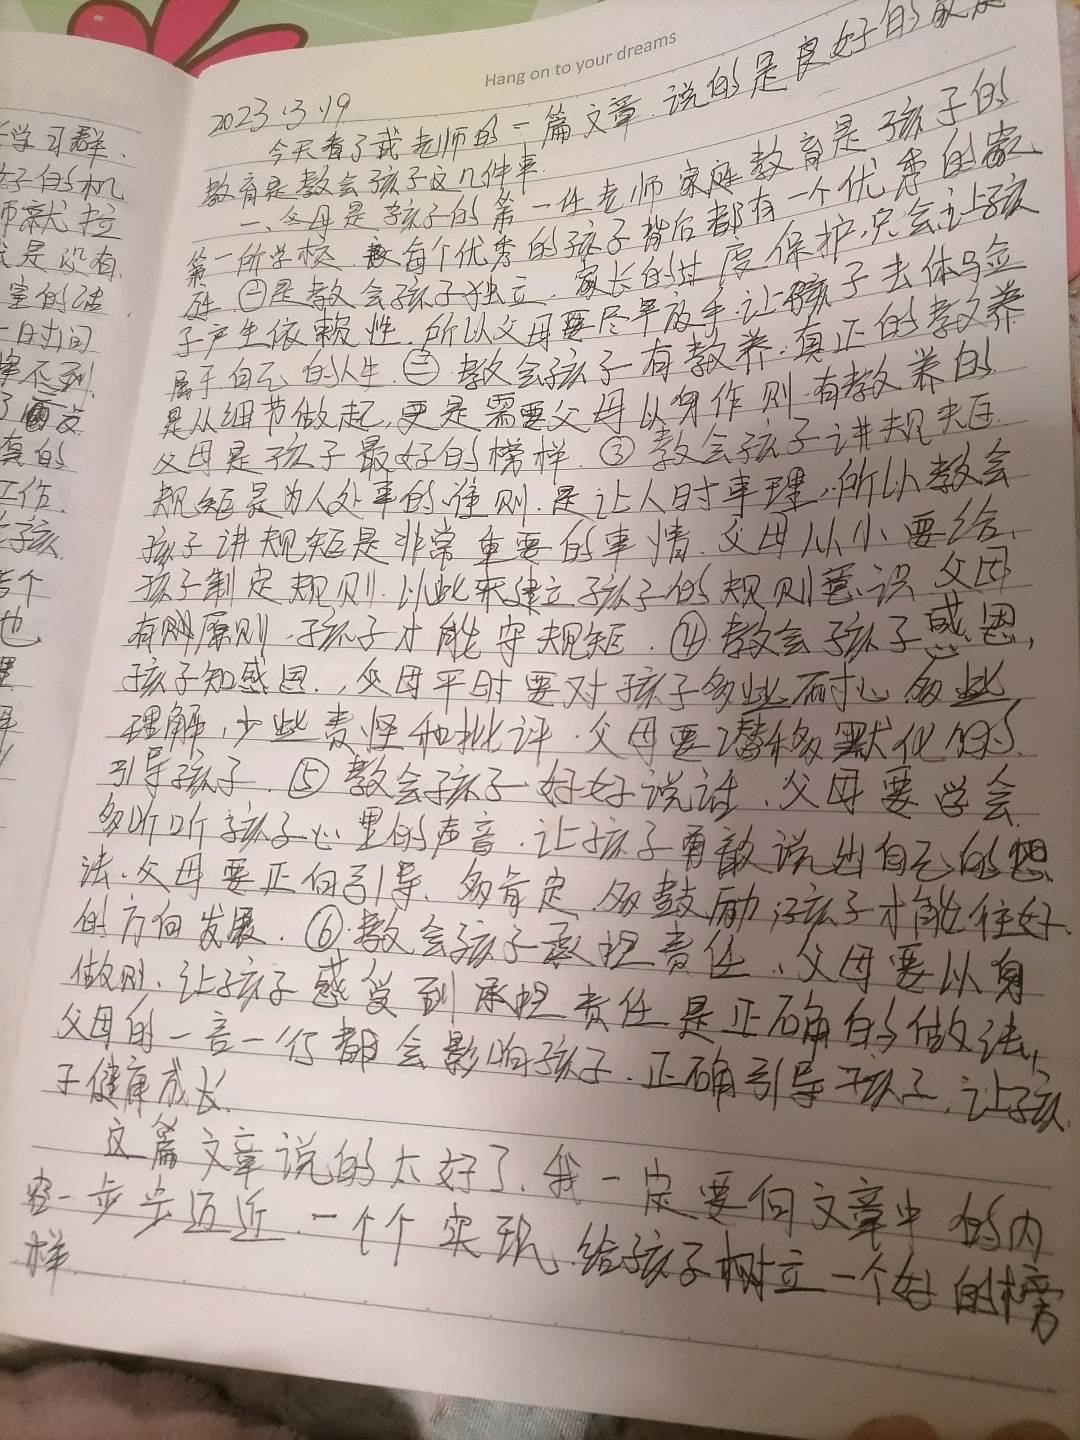 Hang on to your dreams
2023.3.19
今天看了武老师的一篇文章.说的是良好的家庭
教育是教会孩子这几件事.
一、父母是孩子的第一任老师家庭教育是孩子的
第一所学校.每个优秀的孩子背后都有一个优秀的家
庭.㊀是教会孩子独立.家长的过度保护,只会让孩
子产生依赖性.所以父母要尽早放手.让孩子去体验
属于自己的人生.㊁.教会孩子有教养.真正的教养
是从细节做起,更是需要父母以身作则.有教养的
父母是孩子最好的榜样.③教会孩子讲规矩.
规矩是为人处事的准则.是让人时事理.所以教会
孩子讲规矩是非常重要的事情.父母从小要给
孩子制定规则.以此来建立孩子的规则意识.父母
有原则.孩子才能守规矩.④.教会孩子感恩,
孩子知感恩.,父母平时要对孩子多些耐心.多些
理解,少些责怪和批评.父母要潜移默化的
引导孩子.⑤教会孩子好好说话.父母要学会
多听听孩子心里的声音.让孩子勇敢说出自己的想
法.父母要正向引导.多肯定.多鼓励,孩子才能往好
的方向发展.⑥.教会孩子承担责任.父母要以身
做则.让孩子感受到承担责任是正确的做法,
父母的一言一行都会影响孩子.正确引导孩子,让孩
子健康成长.
这篇文章说的太好了.我一定要向文章中的内
容一步步迈近.一个个实现.给孩子树立一个好的榜
样.
学习群.
好的机
师就拉
是没有
室的话
日时间
不到
真的
工作.
孩
个
也